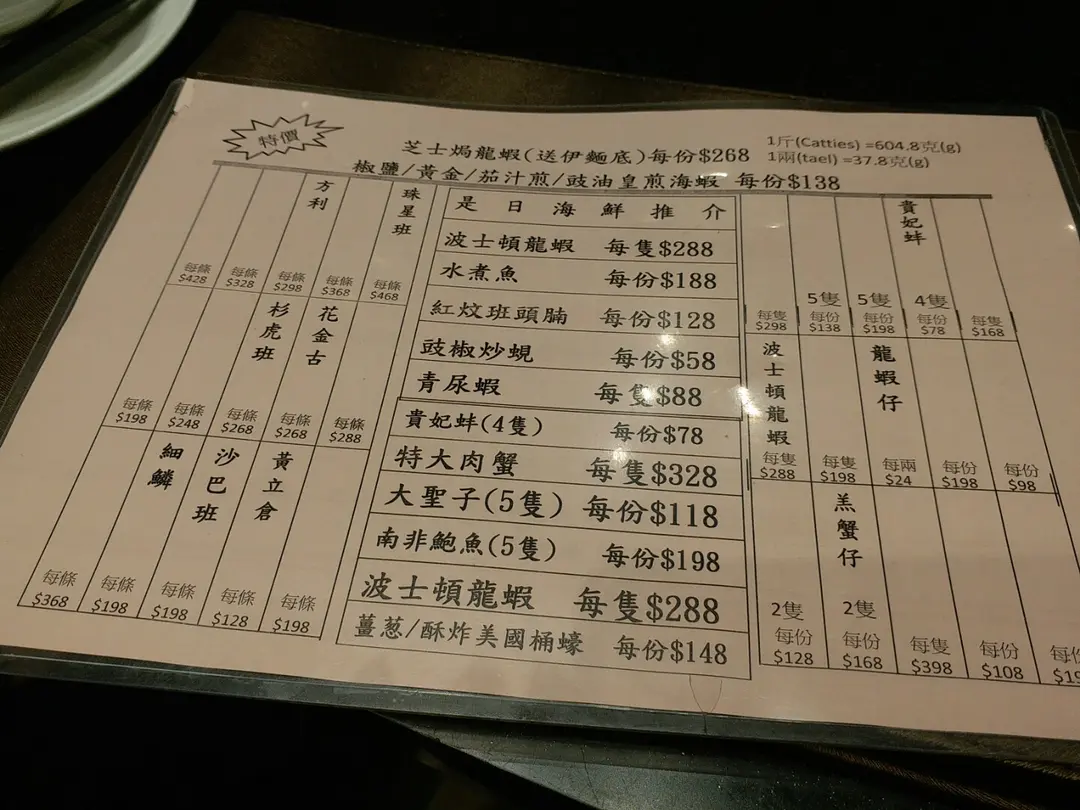 特價
芝士焗龍蝦(送伊麵底)每份$268
椒鹽/黃金/茄汁煎/豉油皇煎海蝦 每份$138
1斤(Catties) =604.8克(g)
1兩(tael) =37.8克(g)
每條 $428
每條 $328
方利 每條 $298
每條 $368
珠星班 每條 $468
每條 $198
每條 $248
杉虎班 每條 $268
花金古 每條 $268
每條 $288
每條 $368
每條 $198
細鱗 每條 $198
沙巴班 每條 $128
黃立倉 每條 $198
是日海鮮推介
波士頓龍蝦 每隻$288
水煮魚 每份$188
紅炆班頭腩 每份$128
豉椒炒蜆 每份$58
青尿蝦 每隻$88
貴妃蚌(4隻) 每份$78
特大肉蟹 每隻$328
大聖子(5隻) 每份$118
南非鮑魚(5隻) 每份$198
波士頓龍蝦 每隻$288
薑葱/酥炸美國桶蠔 每份$148
每隻 $298
5隻 每份 $138
5隻 每份 $198
貴妃蚌 4隻 每份 $78
每隻 $168
波士頓龍蝦 每隻 $288
每隻 $198
龍蝦仔 每兩 $24
每份 $198
每份 $98
2隻 每份 $128
羔蟹仔 2隻 每份 $168
每隻 $398
每份 $108